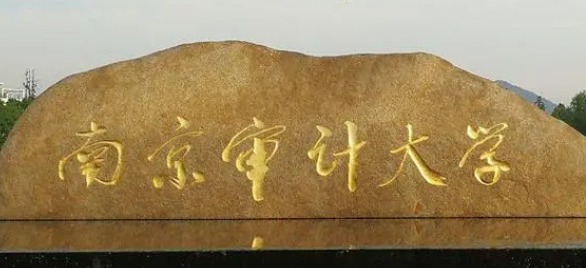 南京审计大学